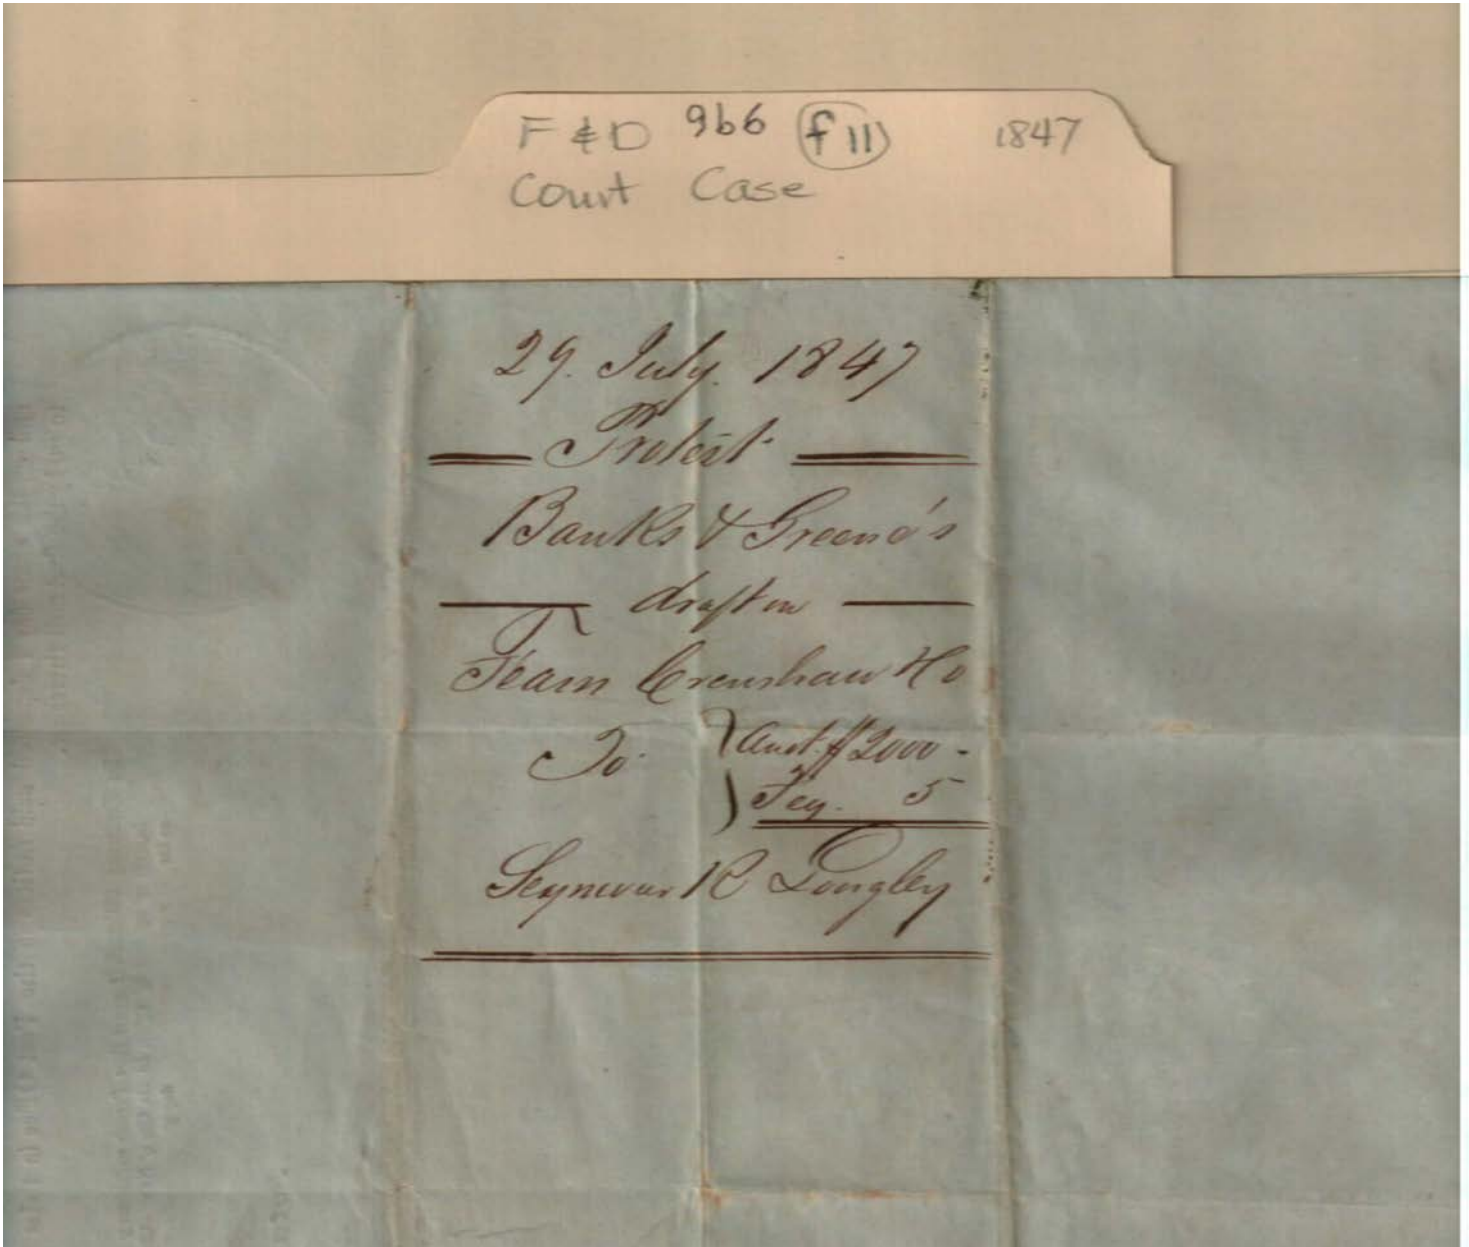 F & D 966 f 11 1847
Court Case
29. July. 1847
Protest
Banks & Greeno's
draft on
Fearn Crenshaw & Co
To
Amt. $2000 -
Fey. 5
Seymour R Longley